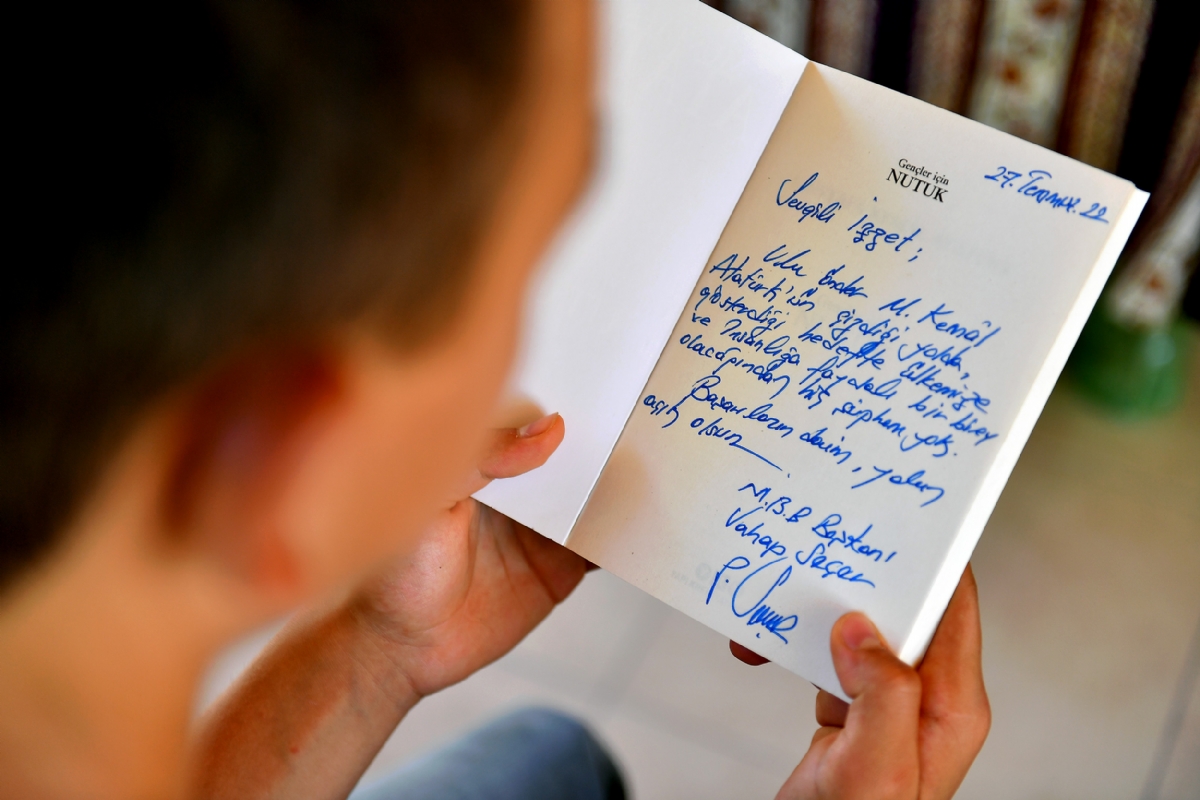 Gençler için
NUTUK
27. Temmuz. 22
Sevgili İzzet;
Ulu önder M. Kemâl
Atatürk'ün çizdiği yolda,
gösterdiği hedefte ülkemize
ve İnsanlığa faydalı bir birey
olacağından hiç şüphem yok.
Başarıların daim, yolun
açık olsun
M.B.B Başkanı
Vahap Seçer